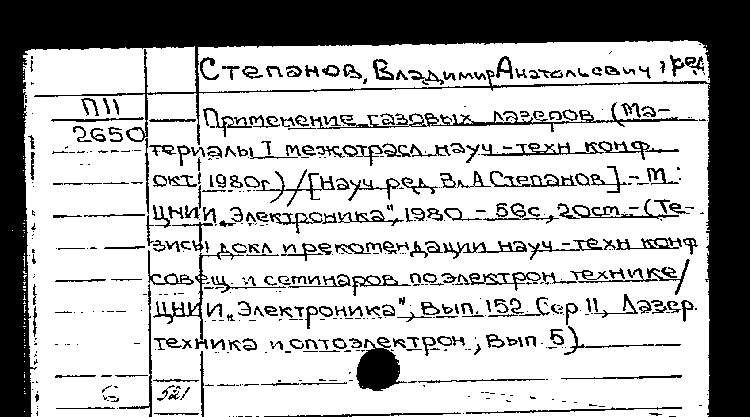 Степанов, Владимир Анатольевич, ред.
П11
2650
Применение газовых лазеров (Ма-
териалы I межотрасл. науч.-техн конф.
окт. 1980г.)/[Науч ред. Вл А Степанов].- М.:
ЦНИИ „Электроника", 1980 - 56с, 20см.-(Те-
зисы докл и рекомендации науч-техн конф
совещ. и семинаров по электрон. технике/
ЦНИИ „Электроника", Вып. 152 Сер 11, Лазер.
техника и оптоэлектрон, вып 5)
6 521